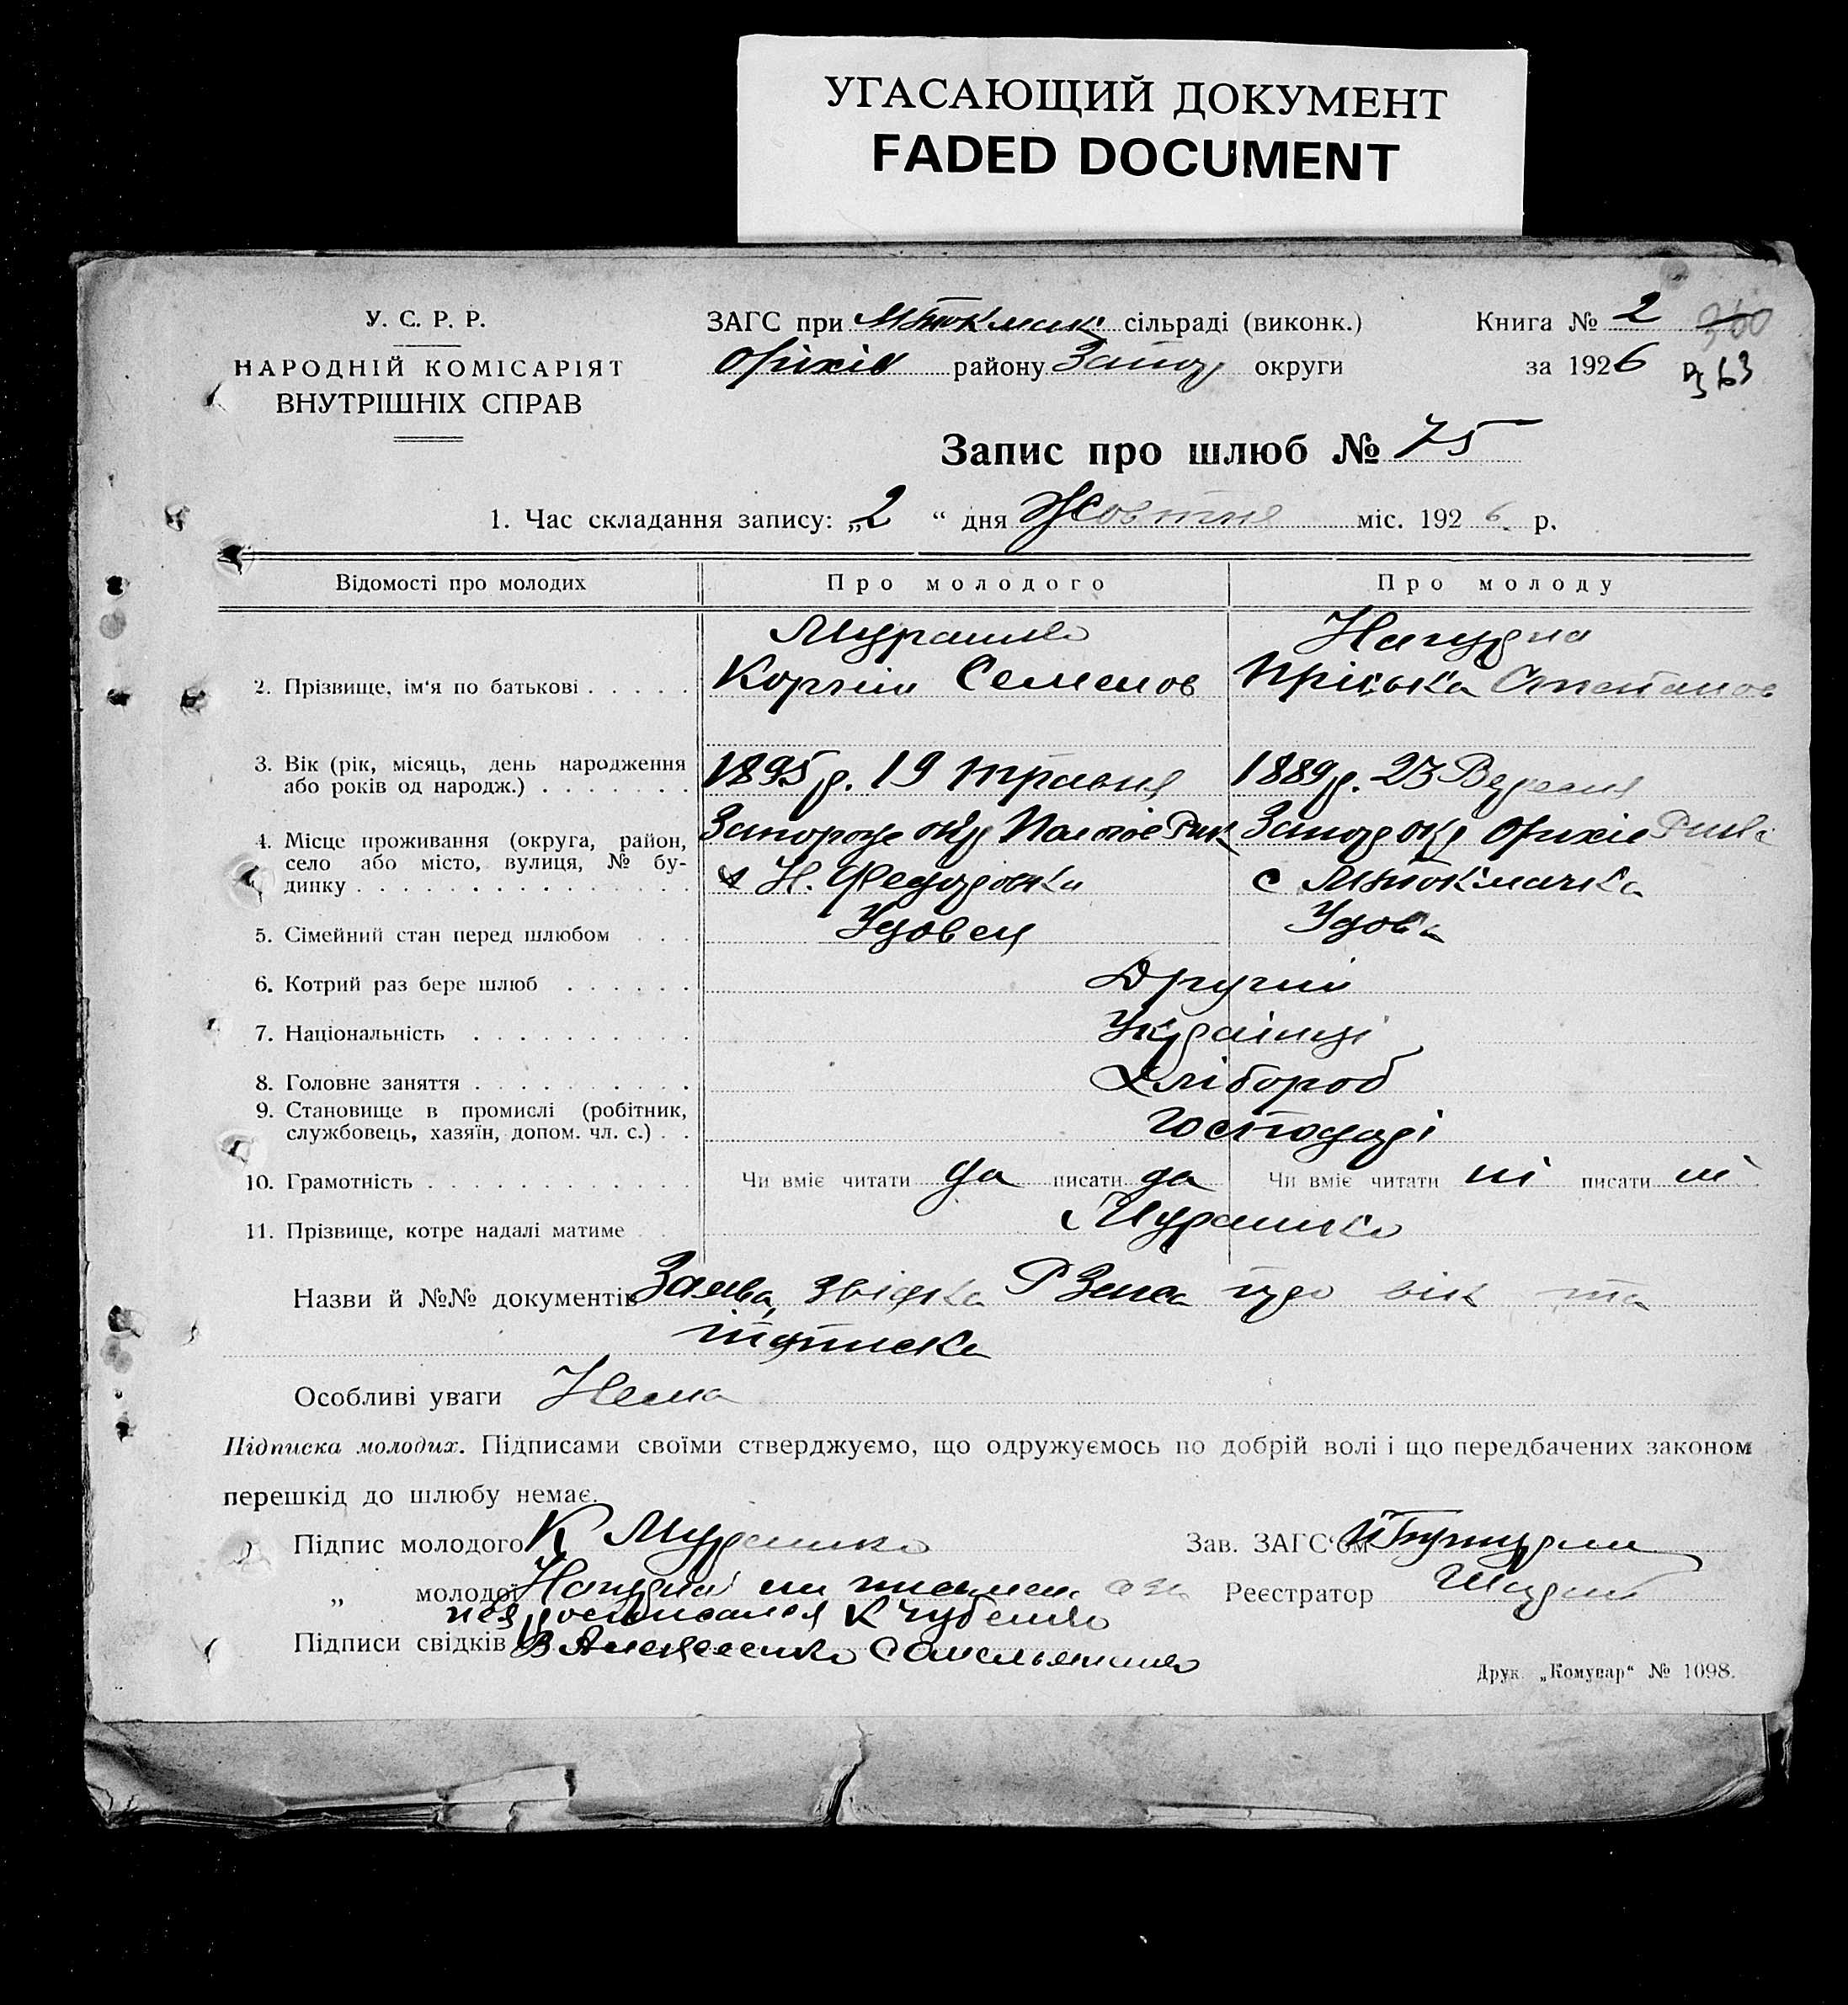 УГАСАЮЩИЙ ДОКУМЕНТ
FADED DOCUMENT
У. С. Р. Р.
НАРОДНІЙ КОМІСАРІЯТ
ВНУТРІШНІХ СПРАВ
ЗАГС при М Токмац сільраді (виконк.)
Оріхів району Запор округи
Книга № 2 360
за 1926 363
Запис про шлюб № 75
1. Час складання запису: „2“ дня Жовтня міс. 1926 р.
Відомості про молодих Про молодого Про молоду
2. Прізвище, ім'я по батькові . . . . .
Мурашко
Корній Семенов
Нагурна
Пріська Степанов
3. Вік (рік, місяць, день народження
або років од народж.) . . . . . . .
1895 р. 19 травня 1889 р. 23 Вересня
4. Місце проживання (округа, район,
село або місто, вулиця, № бу-
динку . . . . . . . . . . . . . .
Запорозь окр
с Н. Федорівка
Запор окр Оріхів
с М Токмачка
5. Сімейний стан перед шлюбом . . . Удовец Удова
6. Котрий раз бере шлюб . . . . . . Другий
7. Національність . . . . . . . . . . Українці
8. Головне заняття . . . . . . . . . . Хлібороб
9. Становище в промислі (робітник,
службовець, хазяїн, допом. чл. с.) . . Господарі
10. Грамотність . . . . . . . . . . . . Чи вміє читати да писати да Чи вміє читати ні писати ні
11. Прізвище, котре надалі матиме . . Мурашко
Назви й №№ документів Заява, звідка РЗагса про вік та
підписка
Особливі уваги Нема
Підписка молодих. Підписами своїми стверджуємо, що одружуємось по добрій волі і що передбачених законом
перешкід до шлюбу немає.
Підпис молодого К Мурашко Зав. ЗАГС'ом
„ молодої Нагурна не письмен а за
Реєстратор
неї росписался К Чубенко
Підписи свідків В Алексеенко С Омельяненко
Друк. „Комунар“ № 1098.